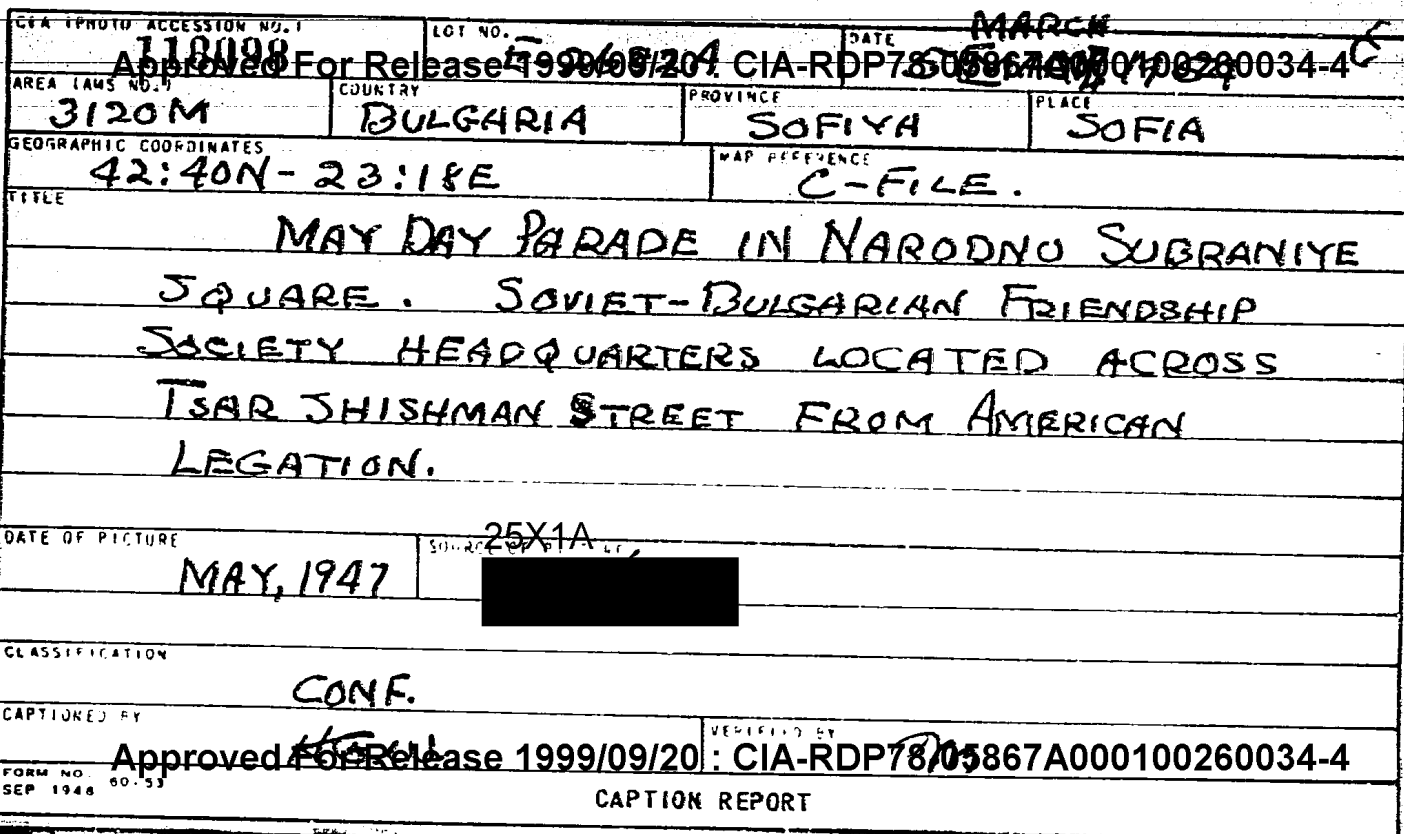 CIA (PHOTO ACCESSION NO.) LOT NO. DATE MARCH
118098
Approved For Release 1999/09/20 : CIA-RDP78-05867A000100260034-4
AREA (AMS NO.) COUNTRY PROVINCE PLACE
3120M BULGARIA SOFIYA SOFIA
GEOGRAPHIC COORDINATES MAP REFERENCE
42:40N-23:18E C-FILE.
TITLE
MAY DAY PARADE IN NARODNO SUBRANIYE
SQUARE. SOVIET-BULGARIAN FRIENDSHIP
SOCIETY HEADQUARTERS LOCATED ACROSS
TSAR SHISHMAN STREET FROM AMERICAN
LEGATION.
DATE OF PICTURE 25X1A
MAY, 1947
CLASSIFICATION
CONF.
CAPTIONED BY VERIFIED BY
Approved For Release 1999/09/20 : CIA-RDP78-05867A000100260034-4
FORM NO. 60-53
SEP 1946
CAPTION REPORT